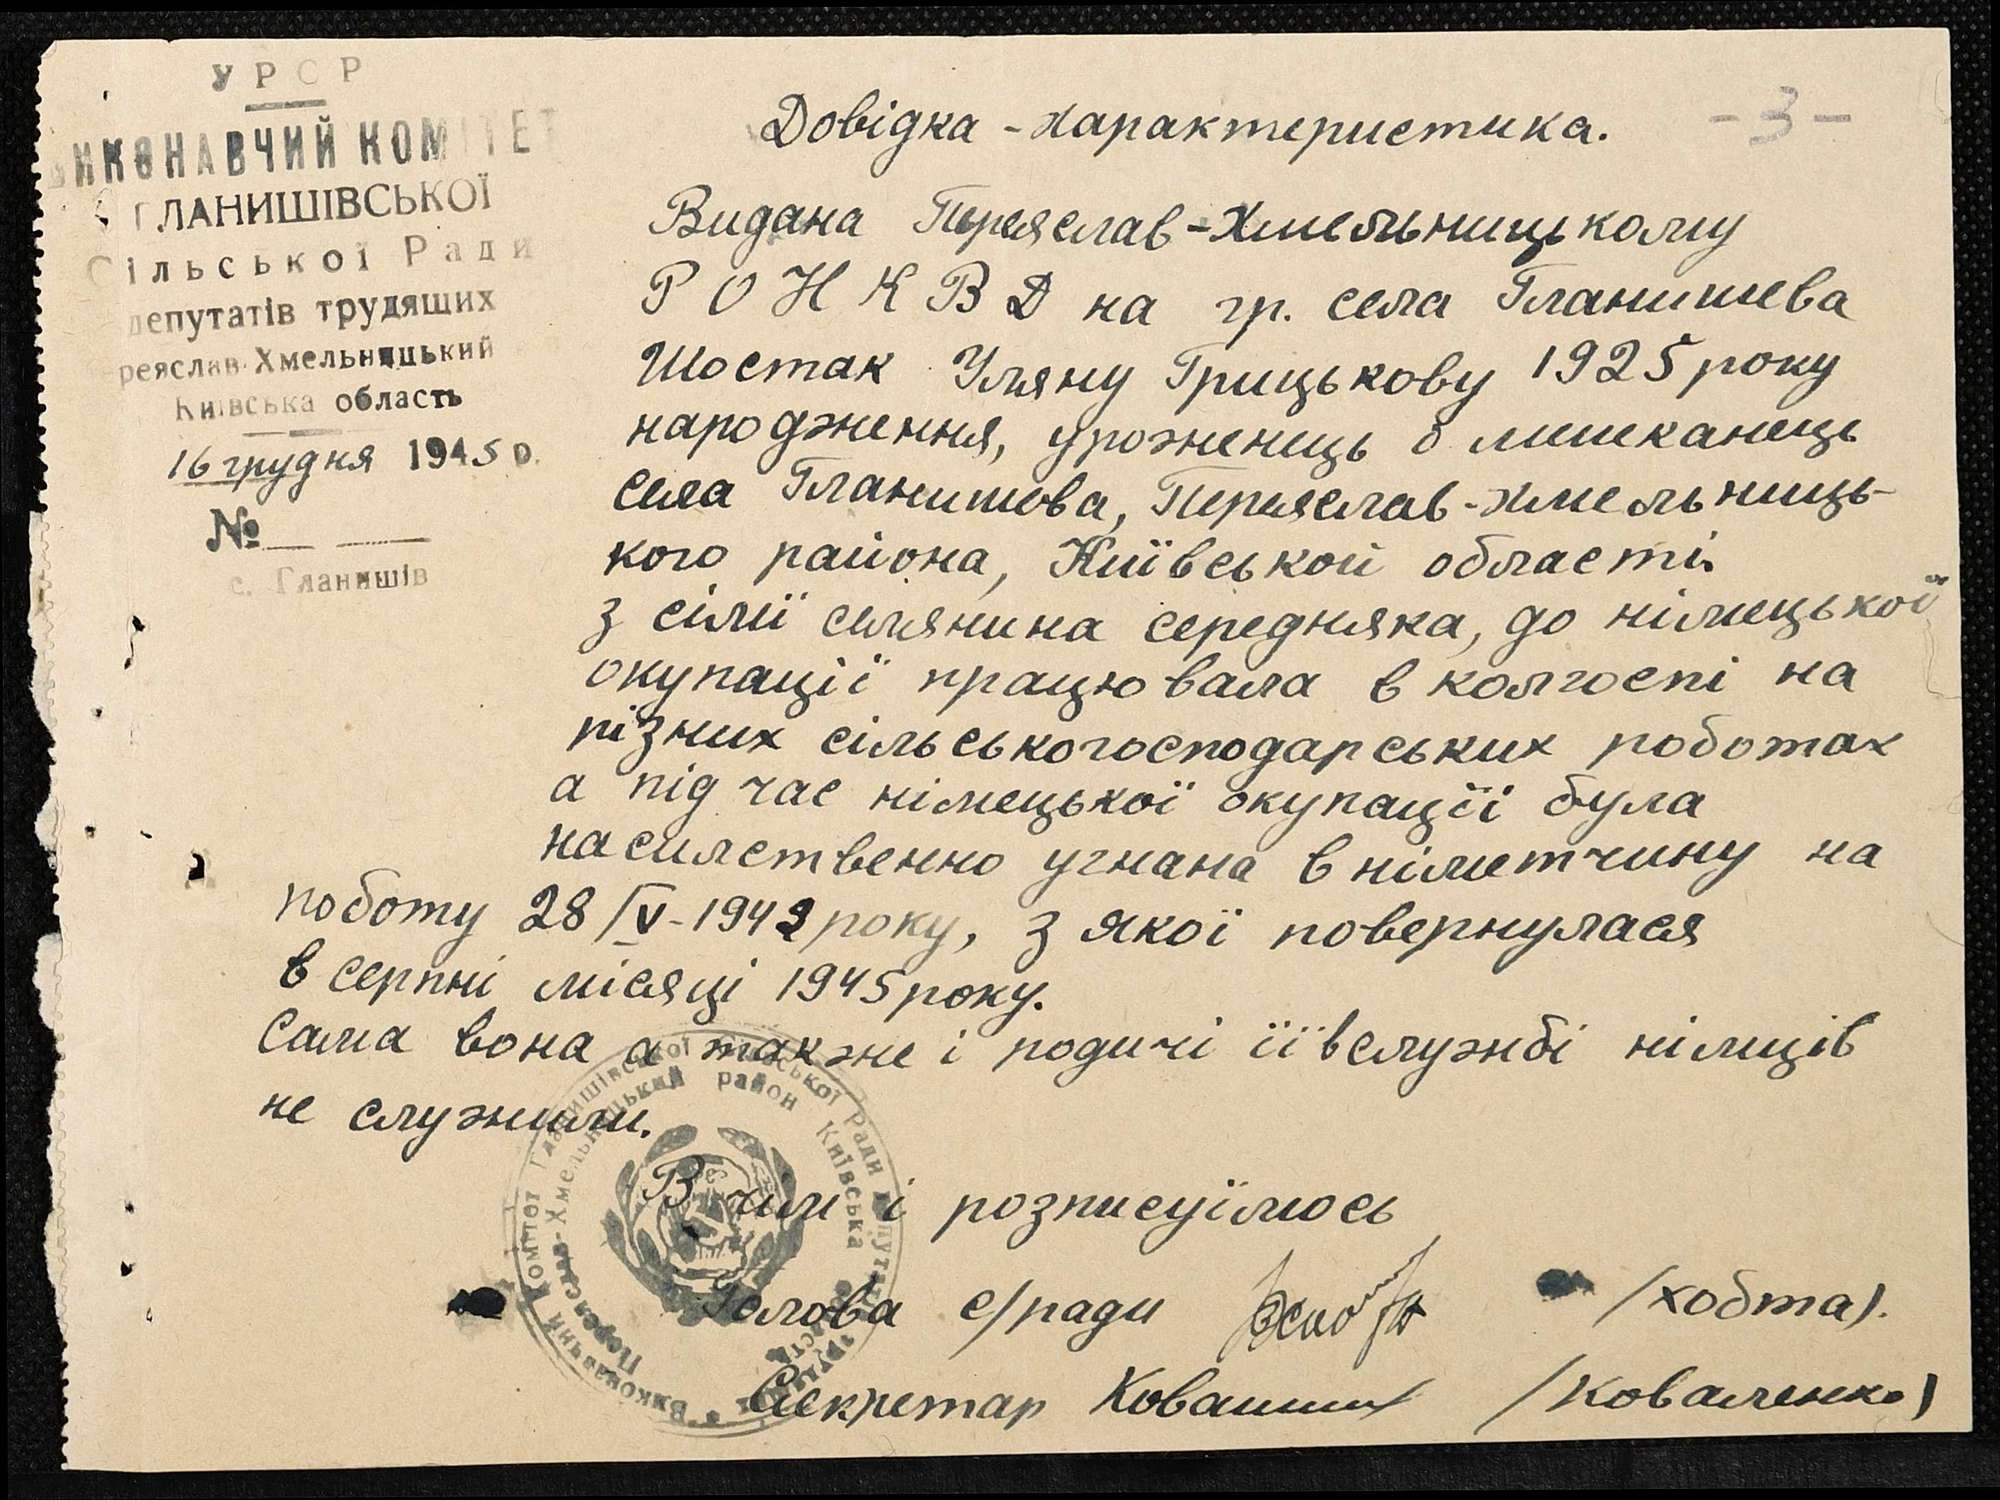 УРСР
ВИКОНАВЧИЙ КОМІТЕТ
ГЛАНИШІВСЬКОЇ
Сільської Ради
депутатів трудящих
реяслав-Хмельницький
Київська область
16 грудня 1945 р.
№
с. Гланишів
Довідка - характеристика.
- 3 -
Видана Переяслав-Хмельницькому
Р О Н К В Д на гр. села Гланишева
Шостак Уляну Грицькову 1925 року
народження, уроженець і мешканець
села Гланишова, Переяслав-Хмельниць-
кого района, Київськой області.
з сімї силянина середняка, до німецької
окупації працювала в колгоспі на
різних сільськогосподарських роботах
а під час німецької окупації була
насилственно угнана в німетчину на
роботу 28/IV-1942 року, з якої повернулася
в серпні місяці 1945 року.
Сама вона а также і родичі її в службі німців
не служили.
В чим і розписуїмось
Голова с/ради /Хобта/.
Секретар /Коваленко/
Виконавчий Комітет Гланишівської Сільської Ради депутатів трудящих
Переяслав-Хмельницький район Київська область